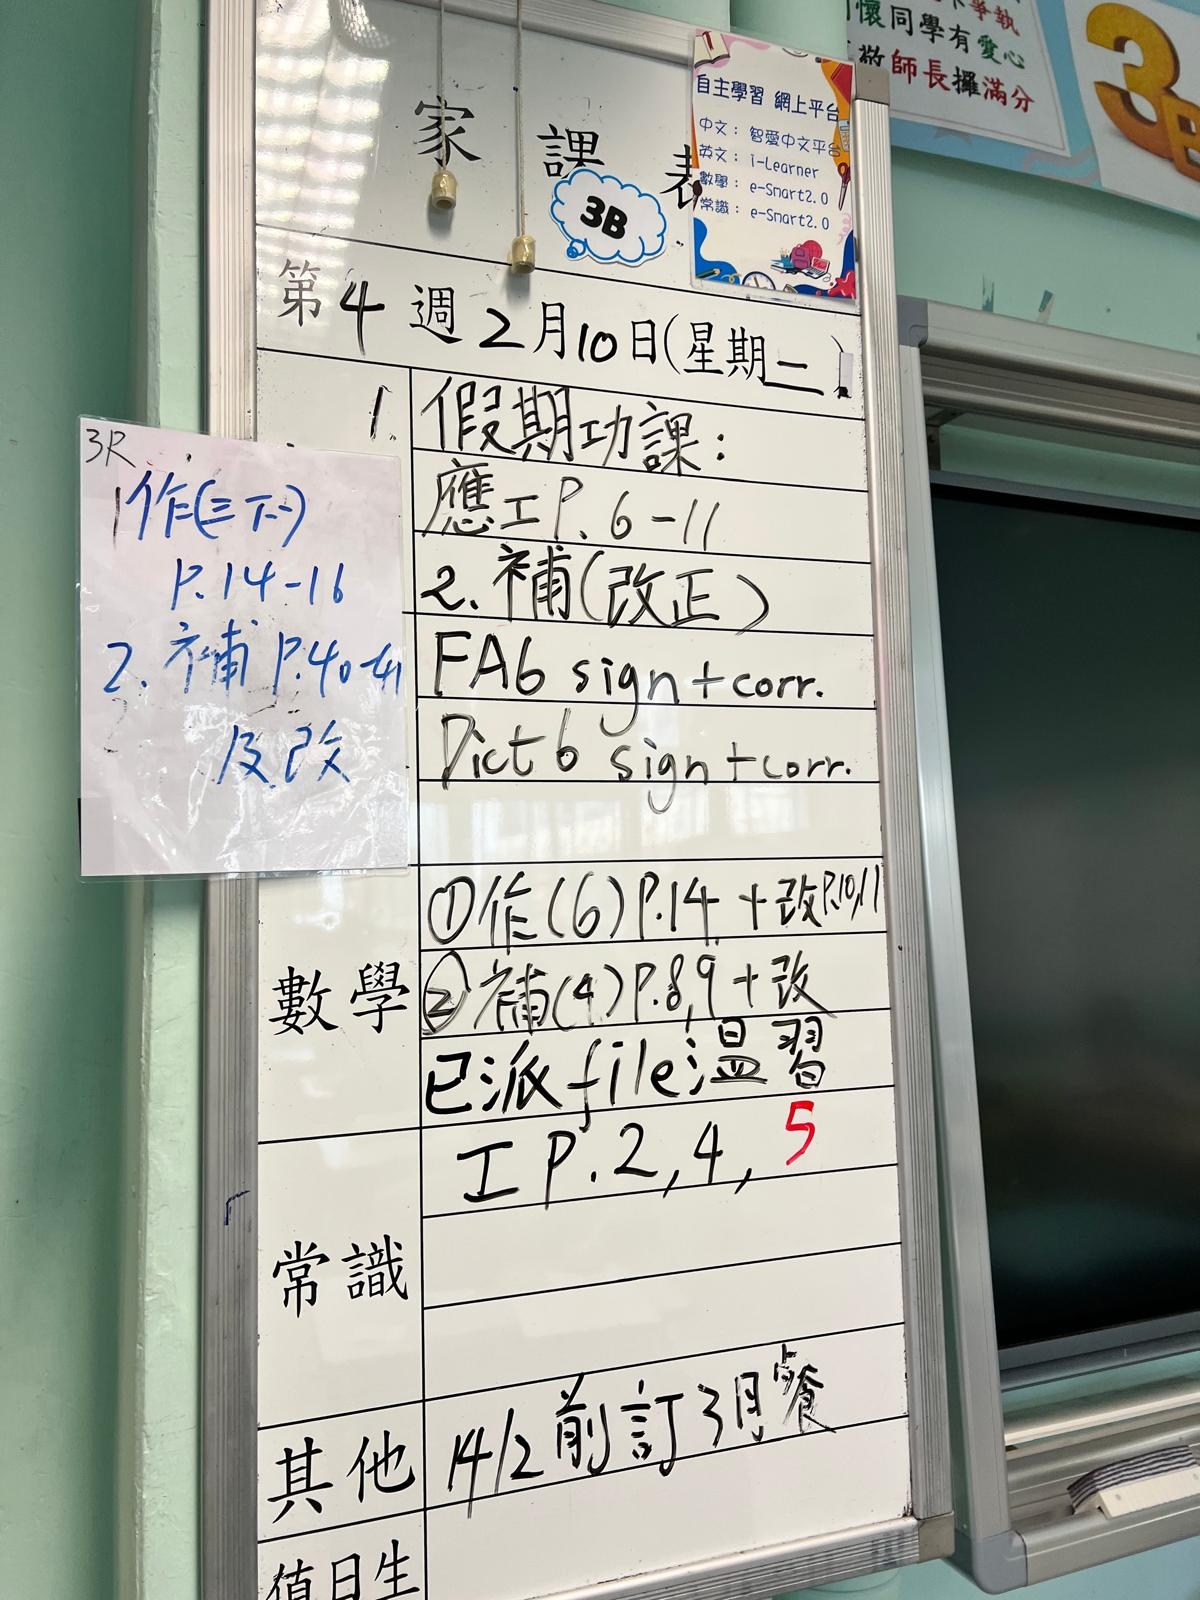 爭執
懷同學有愛心
敬師長攞滿分
3B
自主學習 網上平台
中文： 智愛中文平台
英文： i-Learner
數學： e-Smart2.0
常識： e-Smart2.0
家課表
3B
第4週2月10日(星期二)
1 假期功課：
應工P.6-11
2.補(改正)
FA6 sign+corr.
Dict 6 sign+corr.
3R
1作(三下二)
P.14-16
2.補P.40-41
及改
數學
①作(6)P.14 +改P.10,11
②補(4)P.8,9+改
已派file溫習
常識
工P.2,4,5
其他
14/2前訂3月餐
值日生